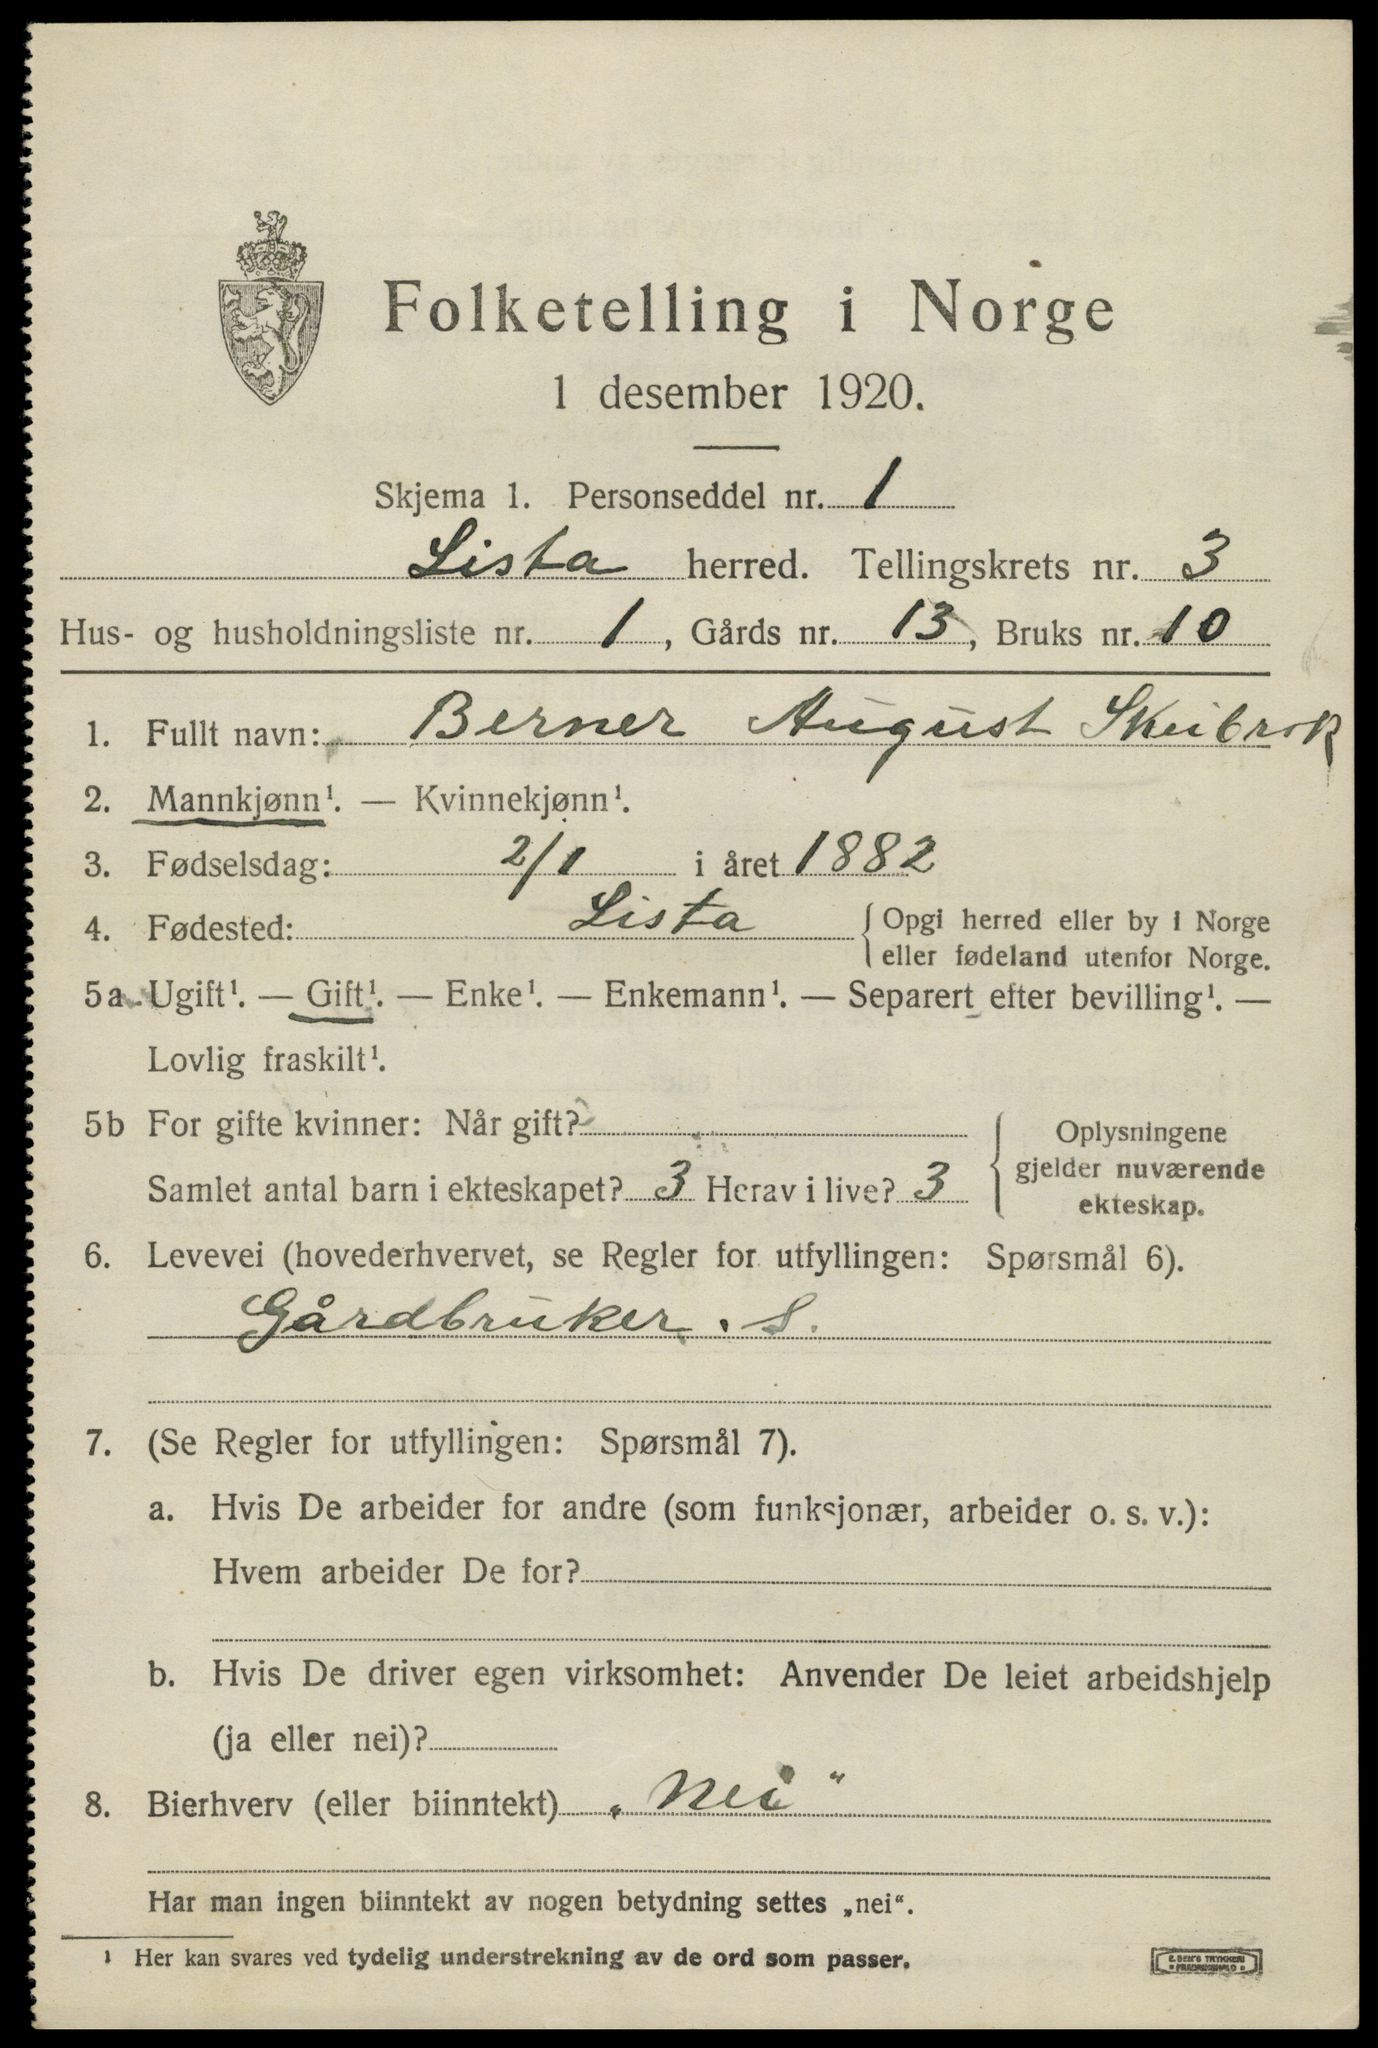 Folketelling i Norge
1 desember 1920.
Skjema 1. Personseddel nr. 1
Lista herred. Tellingskrets nr. 3
Hus- og husholdningsliste nr. 1, Gårds nr. 13, Bruks nr. 10
1. Fullt navn: Berner August Skeibrok
2. Mannkjønn¹. — Kvinnekjønn¹.
3. Fødselsdag: 2/1 i året 1882
4. Fødested: Lista { Opgi herred eller by i Norge
eller fødeland utenfor Norge.
5a Ugift¹. — Gift¹. — Enke¹. — Enkemann¹. — Separert efter bevilling¹. —
Lovlig fraskilt¹.
5b For gifte kvinner: Når gift?
Samlet antal barn i ekteskapet? 3 Herav i live? 3
Oplysningene
gjelder nuværende
ekteskap.
6. Levevei (hovederhvervet, se Regler for utfyllingen: Spørsmål 6).
Gårdbruker. S.
7. (Se Regler for utfyllingen: Spørsmål 7).
a. Hvis De arbeider for andre (som funksjonær, arbeider o. s. v.):
Hvem arbeider De for?
b. Hvis De driver egen virksomhet: Anvender De leiet arbeidshjelp
(ja eller nei)?
8. Bierhverv (eller biinntekt) „Nei“
Har man ingen biinntekt av nogen betydning settes „nei“.
¹ Her kan svares ved tydelig understrekning av de ord som passer.
E. SEM'S TRYKKERI
FREDRIKSHALD